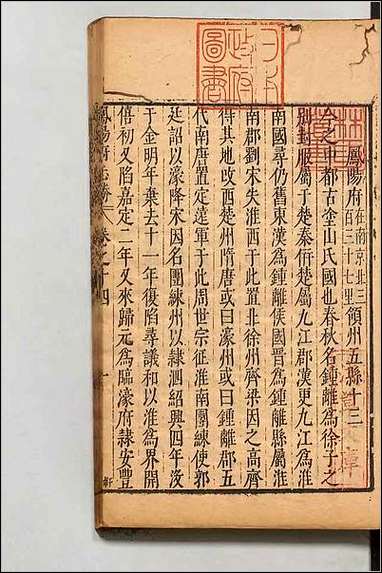 鳳陽府在南京北三百三十七里領州五縣十三
今之中都古塗山氏國也春秋名鍾離為徐子之
別封服屬于楚秦衍楚屬九江郡漢更九江為淮
南國尋仍舊東漢為鍾離侯國晉為鍾離縣屬淮
南郡劉宋失淮西于此置北徐州齊梁因之高齊
得其地改西楚州隋唐或曰濠州或曰鍾離郡五
代南唐置定遠軍于此周世宗征淮南團練使郭
廷詔以濠降宋因名團練州以隸泗紹興四年沒
于金明年棄去十一年復陷尋議和以淮為界開
僖初又陷嘉定二年又來歸元為臨濠府隸安豐
卷之十四
府圖書